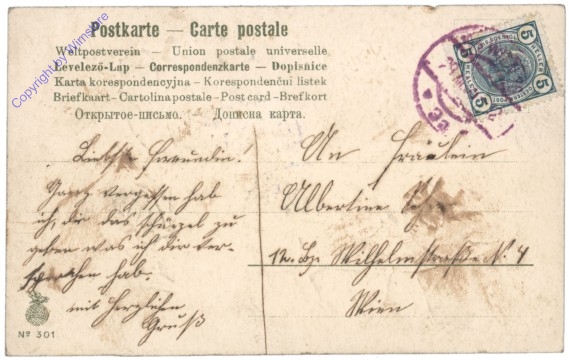 Postkarte – Carte postale
Weltpostverein – Union postale universelle
Levelező-Lap – Correspondenzkarte – Dopisnice
Karta korespondencyjna – Korespondenční listek
Briefkaart – Cartolina postale – Post card – Brefkort
Открытое-письмо. – Дописна карта.
5 HELLER 5
5 5
Copyright by Wimstore
Liebste Freundin!
Ganz vergessen hab
ich, dir das zu
geben was ich dir ver-
sprochen hab.
mit herzlichen
Gruß
An Fräulein
Albertine
Wilhelmstraße N. 4
Wien
Nº 301